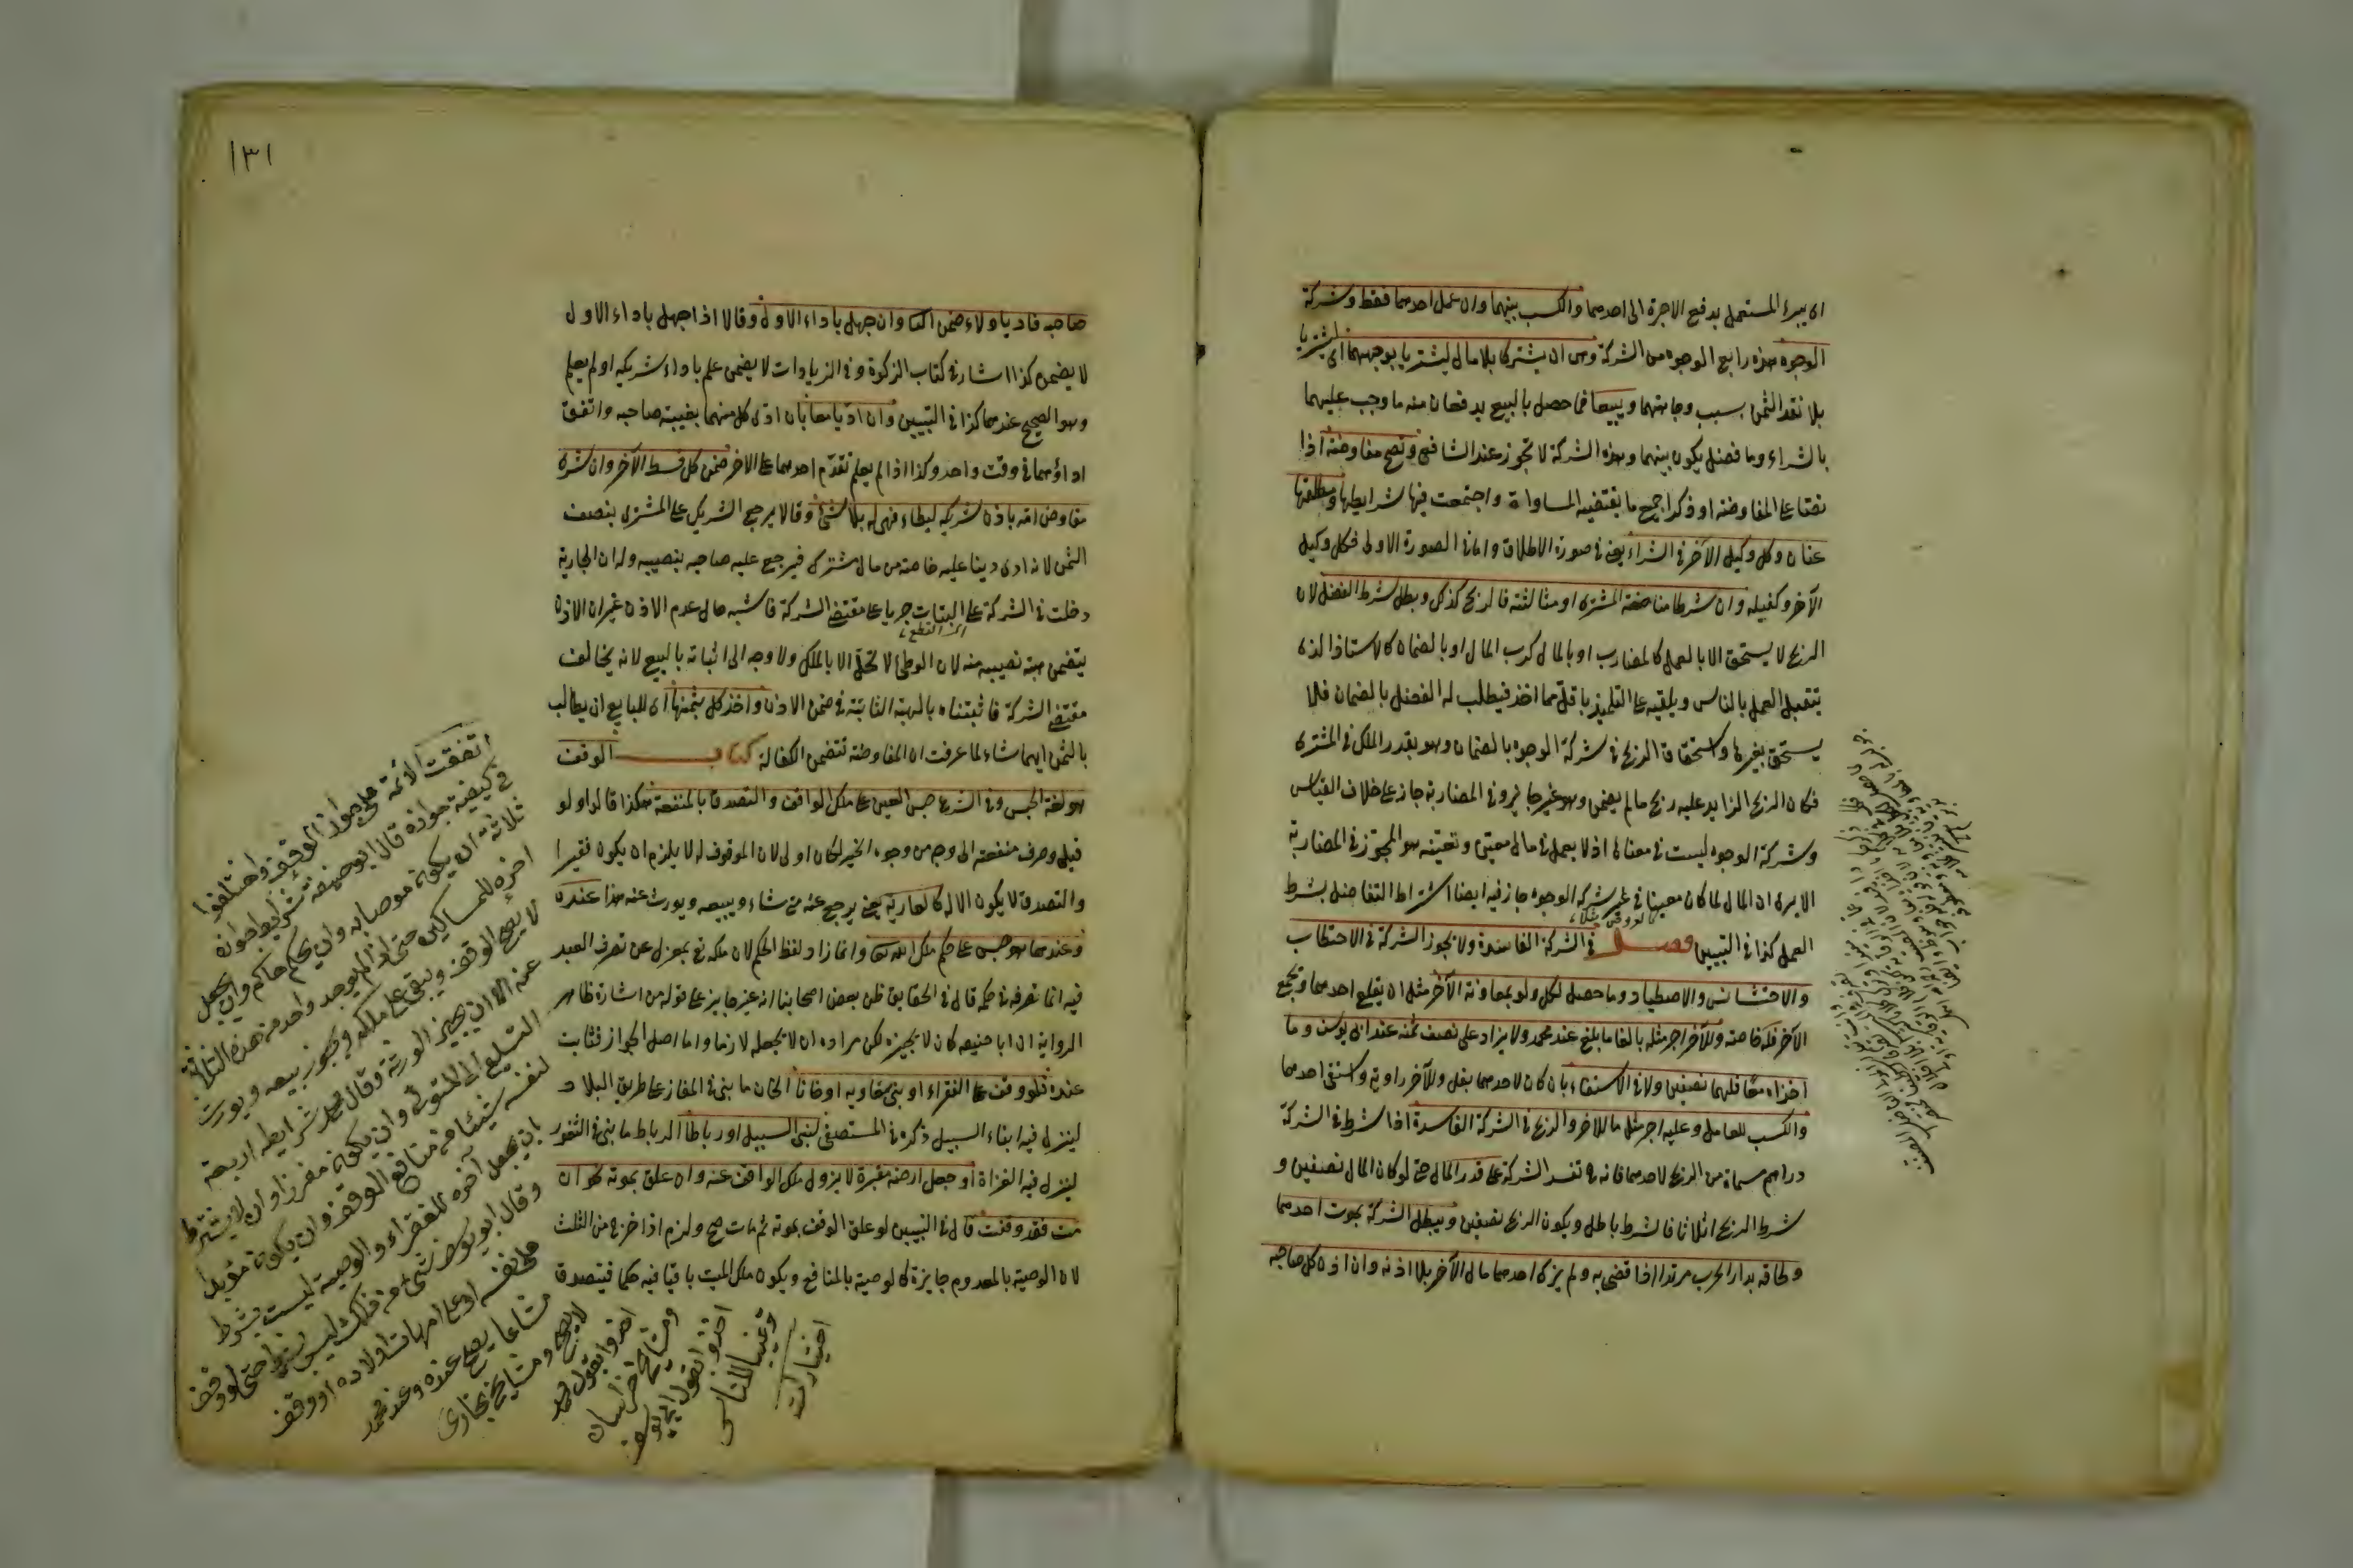 اى يبرء المستعمل بدفع الاجرة الى احدهما والكسب بينهما وان عمل احدهما فقط وشركة
الوجوه هذه رابع الوجوه من الشركة وهى ان يشتركا بلا مال ليشتريا بوجههما اى ليشتريا
بلا نقد الثمن بسبب وجاهتهما ويبيعا فما حصل بالبيع يدفعان منه ما وجب عليهما
بالشراء وما فضل يكون بينهما وهذه الشركة لا تجوز عند الشافعى وتصح مفاوضة اذا
نصّا على المفاوضة او ذكرا جميع ما يقتضيه المساواة واجتمعت فيها شرايطها ومطلقها
عنان وكل وكيل الآخر فى الشراء يعنى فى صورة الاطلاق واما فى الصورة الاولى فكل وكيل
الآخر وكفيله وان شرطا مناصفة المشترى او مثالثته فالربح كذلك وبطل شرط الفضل لان
الربح لا يستحق الا بالعمل كالمضارب او بالمال كرب المال او بالضمان كالاستاذ الذى
يتقبل العمل بالناس ويلقيه على التلميذ باقل مما اخذ فيطلب له الفضل بالضمان فلا
يستحق بغيرها واستحقاق الربح فى شركة الوجوه بالضمان وهو بقدر الملك فى المشترى
فكان الربح الزايد عليه ربح ما لم يضمن وهو غير جايز وفى المضاربة جاز على خلاف القياس
وشركة الوجوه ليست فى معناها اذ لا يعمل فى مال معين وتعينه هو المجوّز فى المضاربة
الا يرى ان المال لما كان معينا فى غير شركة الوجوه جاز فيه ايضا اشتراط التفاضل بشرط
العمل كذا فى التبيين فصل فى الشركة الفاسدة ولا يجوز الشركة فى الاحتطاب
والاحتشاش والاصطياد وما حصل لكل ولو بمعاونة الآخر مثل ان يقلع احدهما ويجمع
الآخر فله خاصة وللآخر اجر مثله بالغا ما بلغ عند محمد ولا يزاد على نصف ثمنه عند ابى يوسف وما
اخذاه معًا فلهما نصفين ولا فى الاستقاء بان كان لاحدهما بغل وللآخر راوية واستقى احدهما
والكسب للعامل وعليه اجر مثل ما للاخر والربح فى الشركة الفاسدة اذا شرط فى الشركة
دراهم مسماة من الربح لاحدهما فانه تفسد الشركة على قدر المال حتى لو كان المال نصفين و
شرط الربح اثلاثا فالشرط باطل ويكون الربح نصفين ويبطل الشركة بموت احدهما
ولحاقه بدار الحرب مرتدا اذا قضى به ولم يزك احدهما مال الآخر بلا اذنه وان اذن كل صاحبه
١٣١
صاحبه فاديا ولاء ضمن الثانى وان جهل باداء الاول وقالا اذا جهل باداء الاول
لا يضمن كذا اشار فى كتاب الزكوة وفى الزيادات لا يضمن علم باداء شريكه او لم يعلم
وهو الصحيح عندهما كذا فى التبيين وان ادّيا معا بان ادّى كل منهما بغيبة صاحبه واتفق
اداؤهما فى وقت واحد وكذا اذا لم يعلم تقدّم احدهما على الآخر ضمن كل قسط الآخر وان شرى
مفاوض امة باذن شريكه ليطاء فهى له بلا شئ وقالا يرجع الشريك على المشترى بنصف
الثمن لانه ادى دينا عليه خاصة من مال مشترك فيرجع عليه صاحبه بنصيبه وله ان الجارية
دخلت فى الشركة على البتات جريا على مقتضى الشركة فاشبه حال عدم الاذن غير ان الاذن
يتضمن هبة نصيبه منه لان الوطئ لا تحلّ الا بالملك ولا وجه الى اثباته بالبيع لانه يخالف
مقتضى الشركة فاثبتناه بالهبة الثابتة فى ضمن الاذن واخذ كل بثمنها اى للبايع ان يطالب
بالثمن ايهما شاء لما عرفت ان المفاوضة تتضمن الكفالة كتاب الوقف
هو لغة الحبس وفى الشرع حبس العين على ملك الواقف والتصدق بالمنفعة هكذا قالوا ولو
قيل وصرف منفعته الى وجه من وجوه الخير لكان اولى لان الموقوف له لا يلزم ان يكون فقيرا
والتصدق لا يكون الا له كالعارية يعنى يرجع عنه متى شاء ويبيعه ويورث عنه هذا عنده
وعندهما هو حبس على حكم ملك الله تعالى وانما زاد لفظ الحكم لان ملكه تع بمعزل عن تصرف العبد
فيه انما تصرفه فى حكمه قال فى الحقايق ظن بعض اصحابنا انه غير جايز على قوله من اشارة ظاهر
الرواية ان ابا حنيفة كان لا يجيزه لكن مراده ان لا يجعله لازما واما اصل الجواز فثابت
عنده فلو وقف على الفقراء او بنى سقاوية او خانا الخان ما بنى فى المفاز على طريق البلاد
لينزل فيه ابناء السبيل ذكره فى المستصفى لبنى السبيل او رباطا الرباط ما بنى فى الثغور
لينزل فيه الغزاة او جعل ارضه مقبرة لا يزول ملك الواقف عنه وان علق بموته نحو ان
مت فقد وقفت قال فى التبيين لو علق الوقف بموته ثم مات صح ولزم اذا خرج من الثلث
لان الوصية بالمعدوم جايزة كالوصية بالمنافع ويكون ملك الميت باقيا فيه حكما فيتصدق
اتفقت الائمة على جواز الوقف واختلفوا
فى كيفية جوازه قال ابو حنيفة شرايط جوازه
ثلاثة ان يكون موصابه وان يحكم حاكم وان يجعل
اخره للمساكين حتى اذا لم يوجد واحد من هذه الثلاثة
لا يصح الوقف ويبقى على ملكه ويجوز بيعه ويورث
عنه الا ان يجيز الورثة وقال محمد شرايطه اربعة
التسليم الى المتولى وان يكون مفرزا وان لا يشترط
لنفسه شيئا من منافع الوقف وان يكون مؤبدا
بان يجعل آخره للفقراء والوصية ليست بشرط
وقال ابو يوسف شئ من ذلك ليس بشرط حتى لو وقف
على نفسه او على امهات اولاده او وقف
مشاعا يصح عنده وعند محمد
لا يصح ومشايخ بخارى
اخذوا بقول محمد
ومشايخ خراسان
اخذوا بقول ابى يوسف
ترغيبا للناس